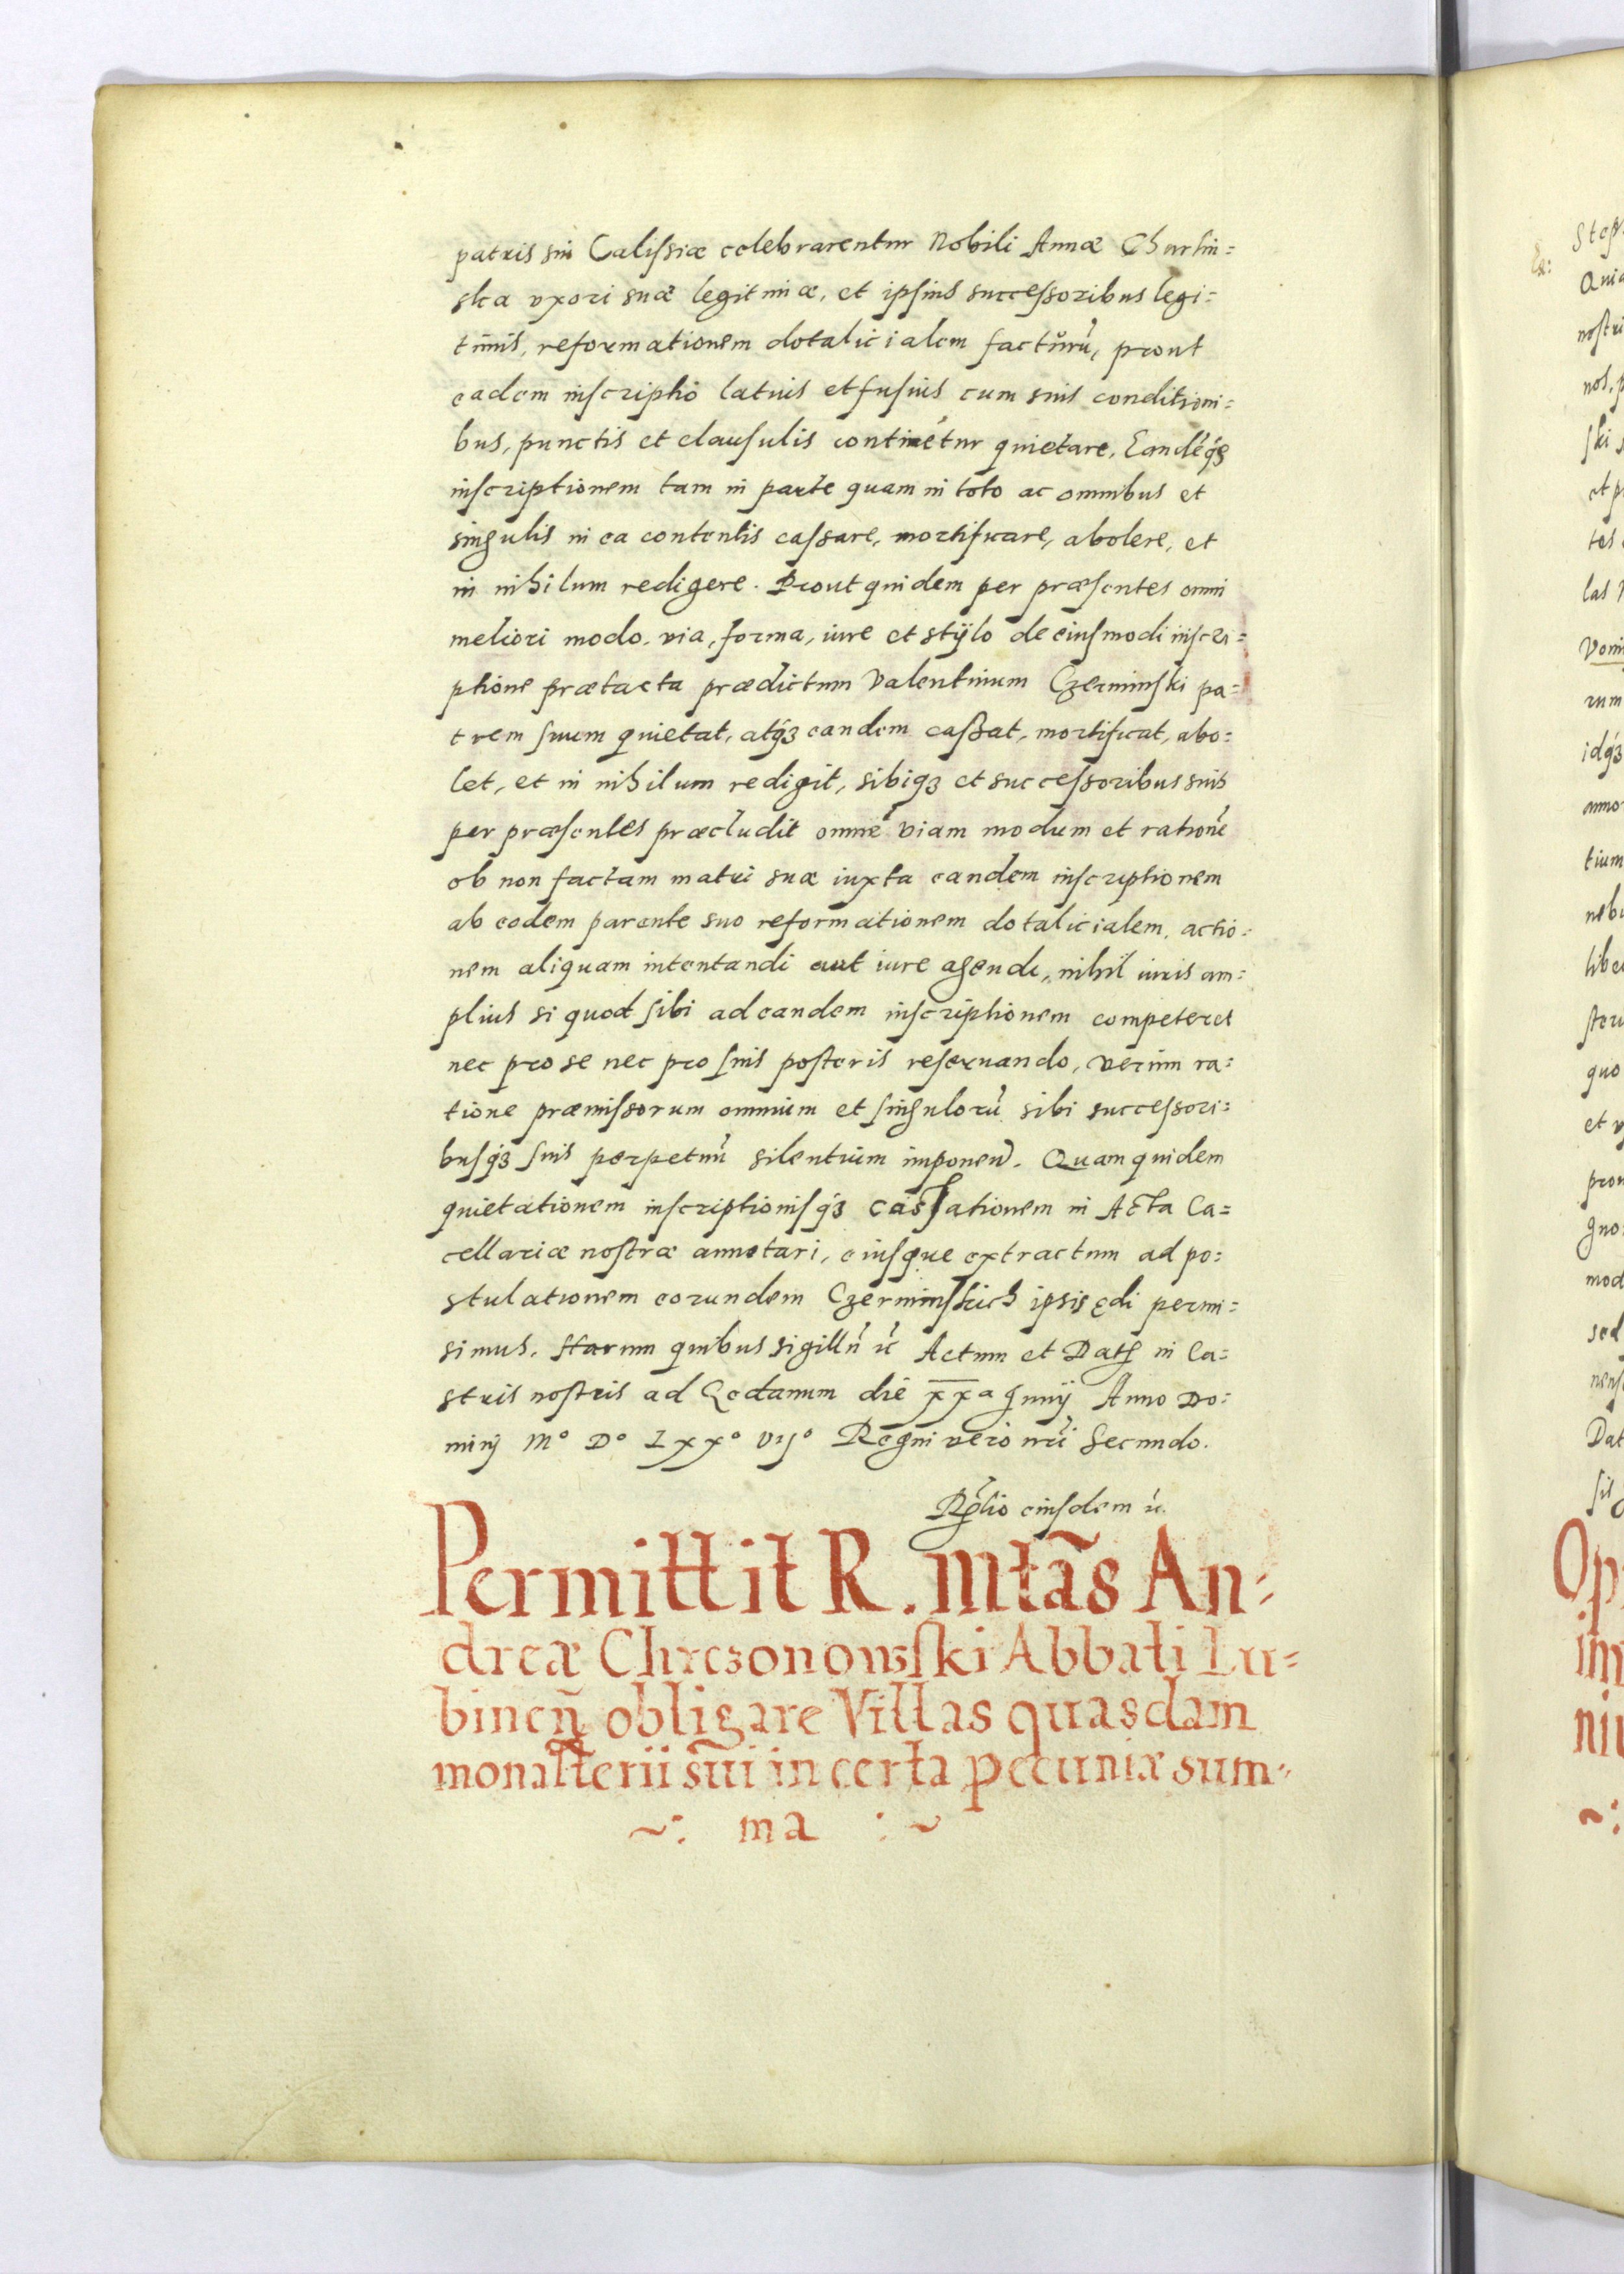 patris sui Calissiæ celebrarentur Nobili Annæ Churlin=
ska vxori suæ legitimæ, et ipsius successoribus legi=
timis, reformationem dotalicialem facturũ, prout
eadem inscriptio latius et fusius cum suis conditioni=
bus, punctis et clausulis continẽtur quietare. Eandẽq3
inscriptionem tam in parte quam in toto ac omnibus et
singulis in ea contentis cassare, mortificare, abolere, et
in nihilum redigere. Prout quidem per præsentes omni
meliori modo, via, forma, iure et stÿlo de eiusmodi inscri=
ptione prætacta prædictum Valentinum Czerminski pa=
trem suum quietat, atq3 eandem caßat, mortificat, abo=
let, et in nihilum redigit, sibiq3 et successoribus suis
per præsentes præcludit omnẽ viam modum et rationẽ
ob non factam matri suæ iuxta eandem inscriptionem
ab eodem parente suo reformationem dotalicialem, actio=
nem aliquam intentandi aut iure agendi, nihil iuris am=
plius si quod sibi ad eandem inscriptionem competeret
nec pro se nec pro suis posteris reseruando, verum ra=
tione præmissorum omnium et singulorũ sibi successori=
busq3 suis perpetuũ silentium imponeñ. Quam quidem
quietationem inscriptionisq3 cassationem in Acta Ca=
cellariæ nostræ annotari, eiusque extractum ad po=
stulationem eorundem Czerminskich ipsis ędi permi=
simus. Harum quibus sigillũ ũ Actum et Dat̃ in Ca=
stris nostris ad Gedanum die xxa Junij Anno Do=
minj Mo Do Lxxo vijo Regni vero nr̃i Secundo.
Rl̃tio eiusdem ũ.
Permittit R. Mtãs An=
dreæ Chrczonowski Abbati Lu=
bineñ obligare Villas quasdam
monasterii sui in certa pecuniæ sum=
~: ma :~